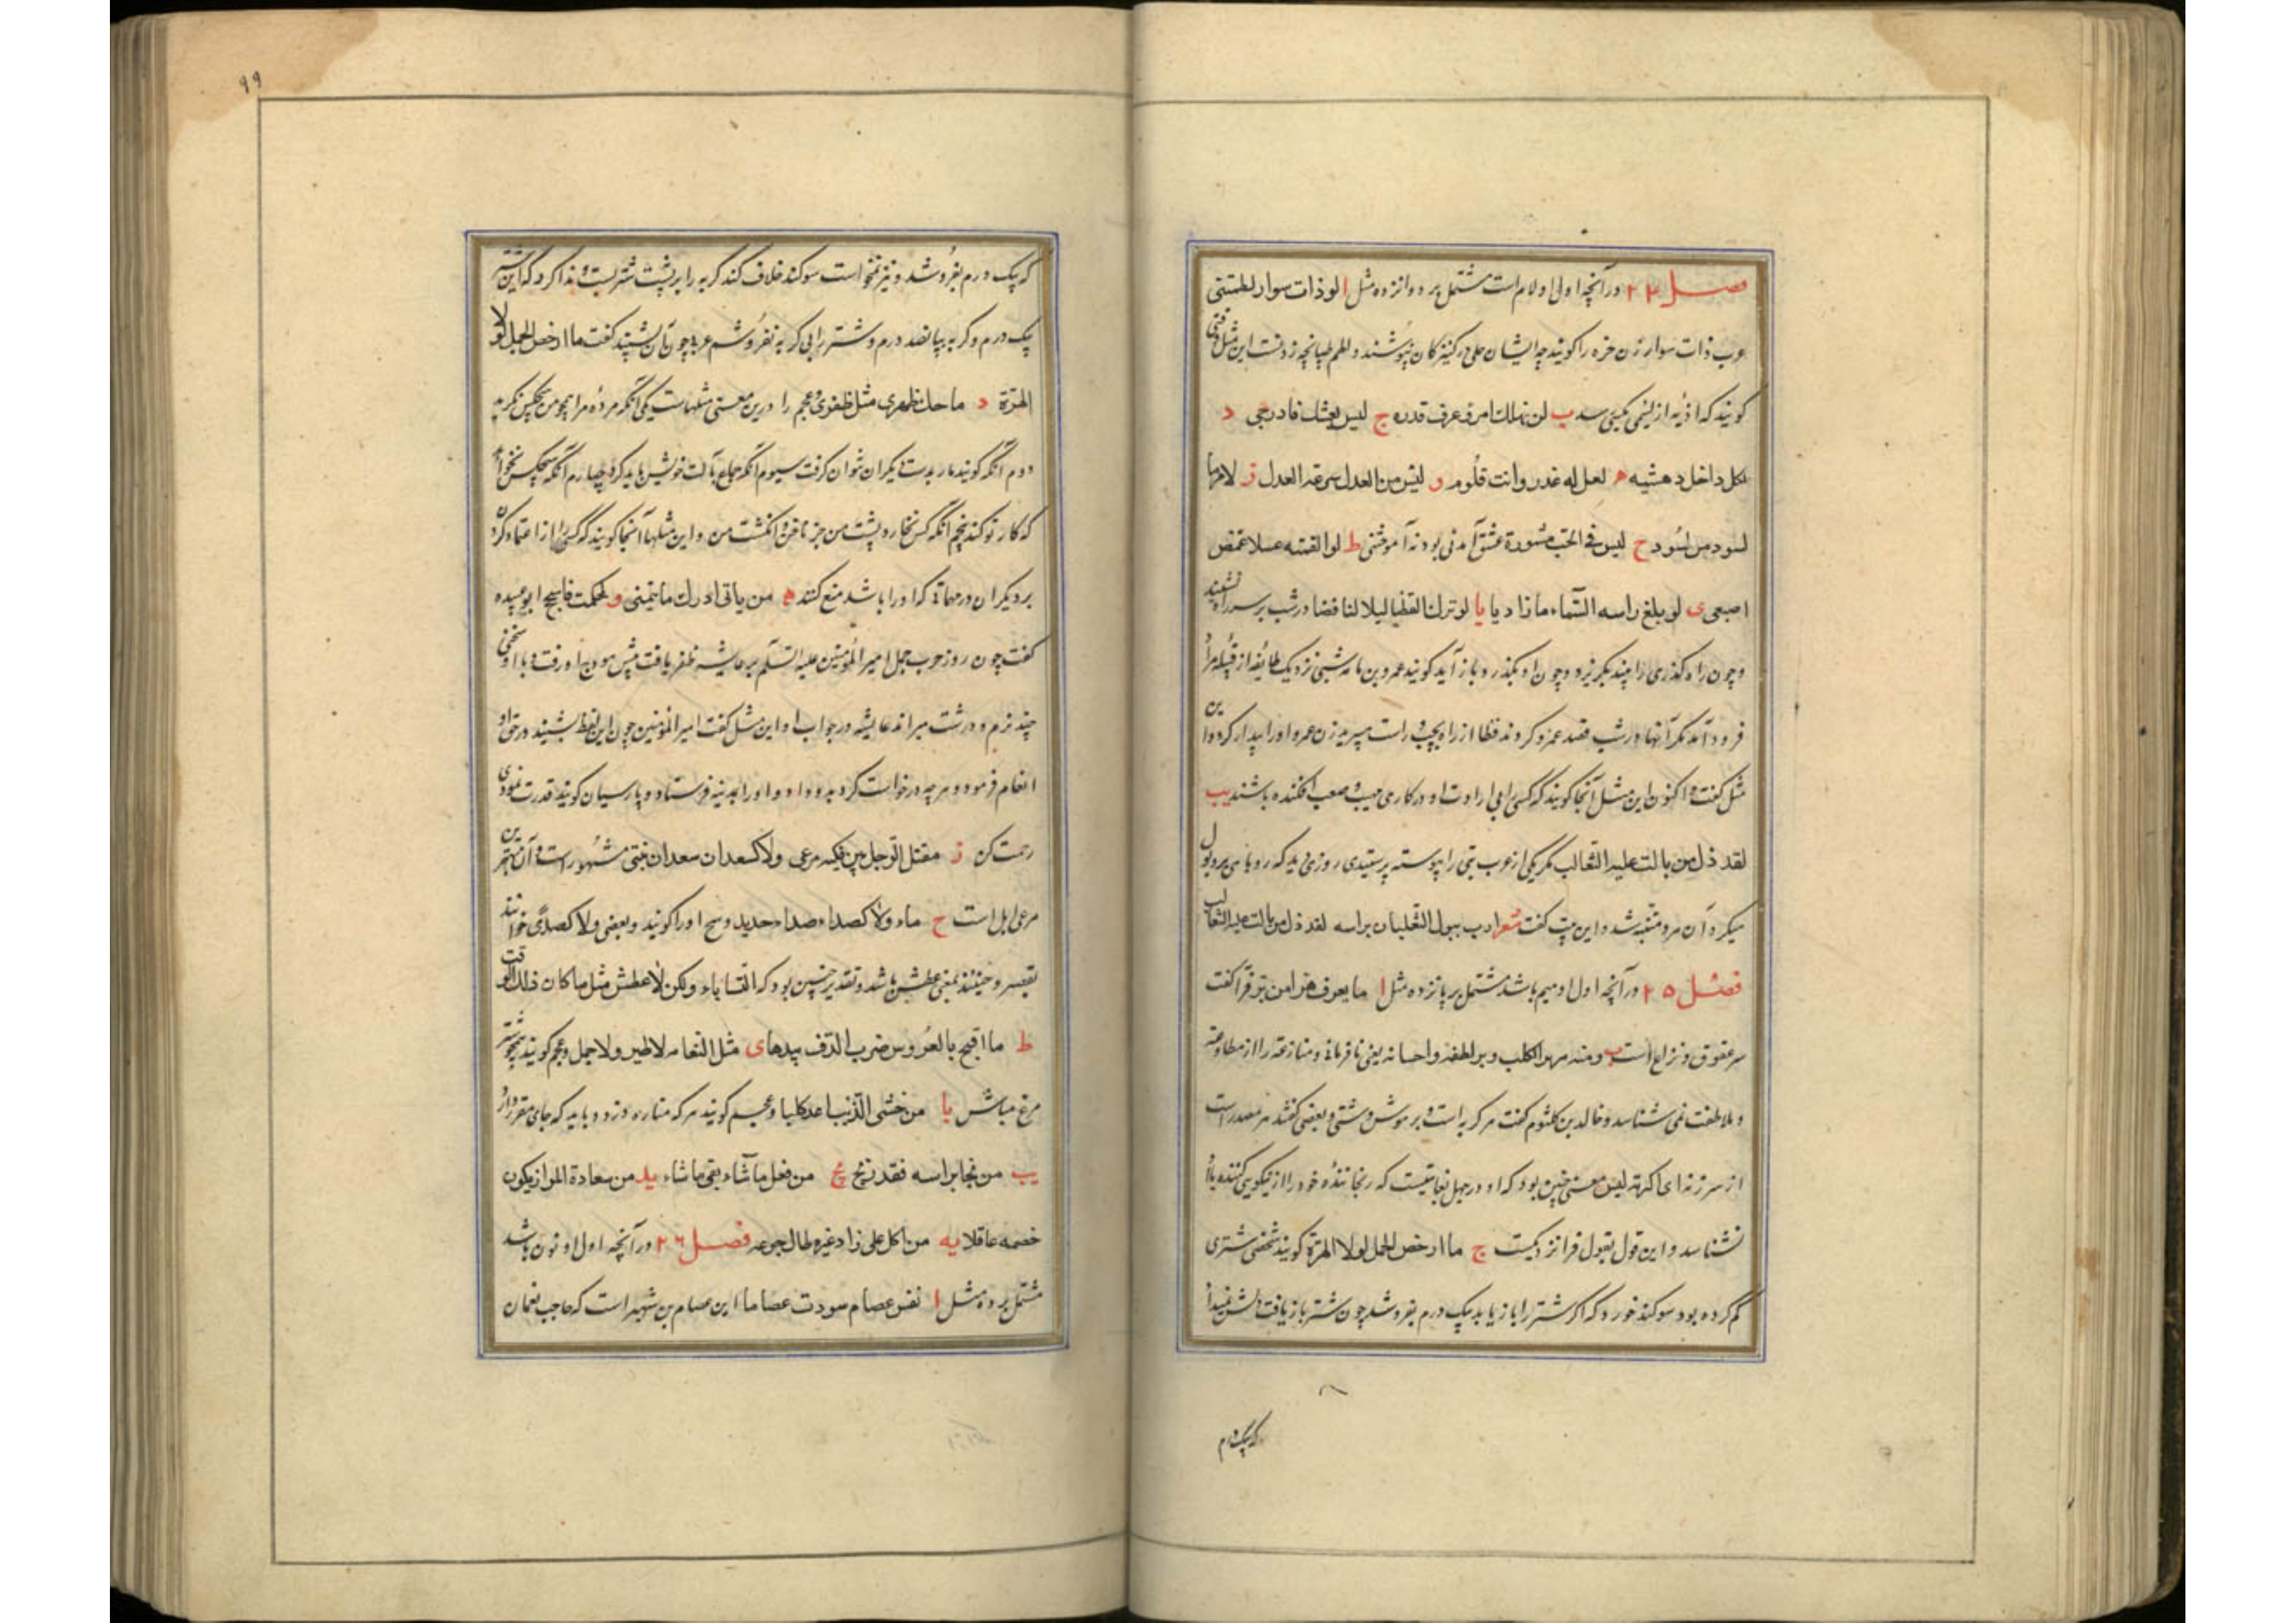 فصل ۲۴ در آنچه اول او لام است مشتمل بر دوازده مثل ا لو ذات سوار لطمتنی
عرب ذات سوار زن حره را گویند چه ایشان حلی در کنیزکان نپوشند و لطم طپانچه زدنست این مثل وقتی
گویند که اذیه از لئیمی بکسی رسد ب لن یهلک امرؤ عرف قدره ج لیس بعشک فادرجی د
لکل داخل دهشیه ه لعل له عذر وانت تلوم و لیس من العدل سرعة العدل ز
لیس فی الحب مشورة عشق آمدنی بود نه آموختنی ط لو القمته عسلا عض
اصبعی ی لو بلغ راسه السماء ما زاد یا لو ترک القطا لیلا لنا قطا در شب بر سر راه نشیند
و چون راه گذری را بیند بگریزد و چون او بگذرد باز آید گویند عمرو بن مامه شبی نزدیک طایفه از قبیله مراد
فرود آمد مگر آنها در شب قصد عمرو کردند قطا از راه بچپ و راست میپرید زن عمرو او را بیدار کرد و این
مثل گفت و اکنون این مثل آنجا گویند که کسی را بی ارادت او در کاری صعب افکنده باشند یب
لقد ذل من بالت علیه الثعالب مگر یکی از عرب بتی را پیوسته پرستیدی روزی دید که روباهی برو بول
میکرد آن مرد متنبه شد و این بیت گفت شعر ارب یبول الثعلبان براسه لقد ذل من بالت علیه الثعالب
فصل ۲۵ در آنچه اول او میم باشد مشتمل بر پانزده مثل ا ما یعرف هرا من بر فرا گفت
هر عقوق و نزاع است ومنه هر الکلب وبر لطفه واحسانه یعنی نافرمانی و منازعه را از مطاوعه
و ملاطفت نمی شناسد و خالد بن کلثوم گفت هر گربه است و بر موش دشتی و بعضی گفتند هر مصدر است
از هررته ای کرهته پس معنی چنین بود که او در جهل بغایتیست که رنجاننده خود را از نیکویی کننده باو
نشناسد و این قول بقول فرا نزدیکست ج ما ارخص الجمل لولا الهرة گویند شخصی شتری
گم کرده بود سوگند خورد که اگر شتر را باز یابد بیک درم بفروشد چون شتر باز یافت
که بیک درم
۹۹
که بیک درم بفروشد و نیز نخواست سوگند خلاف کند گربه را بر پشت شتر بست و ندا کرد که این شتر
بیک درم و گربه بپانصد درم و شتر را بی گربه نفروشم عربی چون آن بشنید گفت ما ارخص الجمل لولا
الهرة د ما حک ظهری مثل ظفری و عجم را درین معنی مثلهاست یکی آنکه مرده مرا همچو من هیچکس نگرید
دوم آنکه گویند مار بدست دیگران توان گرفت سیوم آنکه جماع بآلت خویش باید کرد چهارم آنکه هیچکس نخواهد
که کار تو کند پنجم آنکه کس نخارد پشت من جز ناخن انگشت من و این مثلها آنجا گویند که کسی را از اعتماد کردن
بر دیگران در مهماتی که او را باشد منع کنند ه من یاتی ادرک ما یتمنی و ملکت فاسجح ابو عبیده
گفت چون روز حرب جمل امیر المؤمنین علیه السلم بر عایشه ظفر یافت پیش هودج او رفت و با او سخنی
چند نرم و درشت میراند عایشه در جواب او این مثل گفت امیر المؤمنین چون این لفظ بشنید در حق او
انعام فرمود و هر چه درخواست کرد بدو داد و او را بمدینه فرستاد و پارسیان گویند قدرت نمودی
رحمت کن ز مقتل الرجل بین فکیه مرعی ولا کسعدان سعدان نبتی مشهور است و آن بهترین
مرعی ابل است ح ماء ولا کصداء صداء حدید وسخ او را گویند و بعضی ولا کصدی خوانند
بقصر و حینئذ بمعنی عطش باشد و تقدیر چنین بود که القساء ماء ولکن لا عطش مثل ما کان ذلک الوقت
ط ما اقبح بالعروس ضرب الدف بیدها ی مثل النعامه لا طیر ولا جمل و عجم گویند همچو شتر
مرغ مباش یا من خشی الذئب اعد کلبا و عجم گویند هر که مناره دزدد باید که جای مقرر دارد
یب من نجا براسه فقد ربح یج من فعل ما شاء لقی ما شاء ید من سعادة المرء ان یکون
خصمه عاقلا یه من اکل علی زاد غیره طال جوعه فصل ۲۶ در آنچه اول او نون باشد
مشتمل بر ده مثل ا نفس عصام سودت عصاما این عصام بن شهبر است که حاجب نعمان